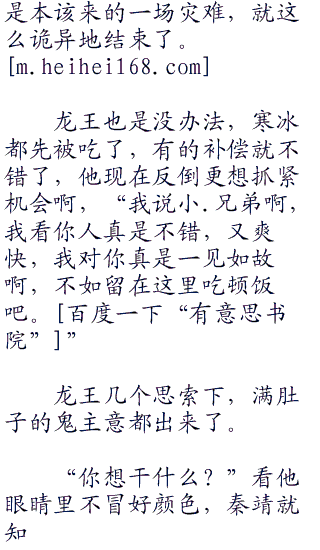 是本该来的一场灾难，就这
么诡异地结束了。
[m.heihei168.com]
龙王也是没办法，寒冰
都先被吃了，有的补偿就不
错了，他现在反倒更想抓紧
机会啊，“我说小.兄弟啊，
我看你人真是不错，又爽
快，我对你真是一见如故
啊，不如留在这里吃顿饭
吧。[百度一下“有意思书
院”]”
龙王几个思索下，满肚
子的鬼主意都出来了。
“你想干什么？”看他
眼睛里不冒好颜色，秦靖就
知